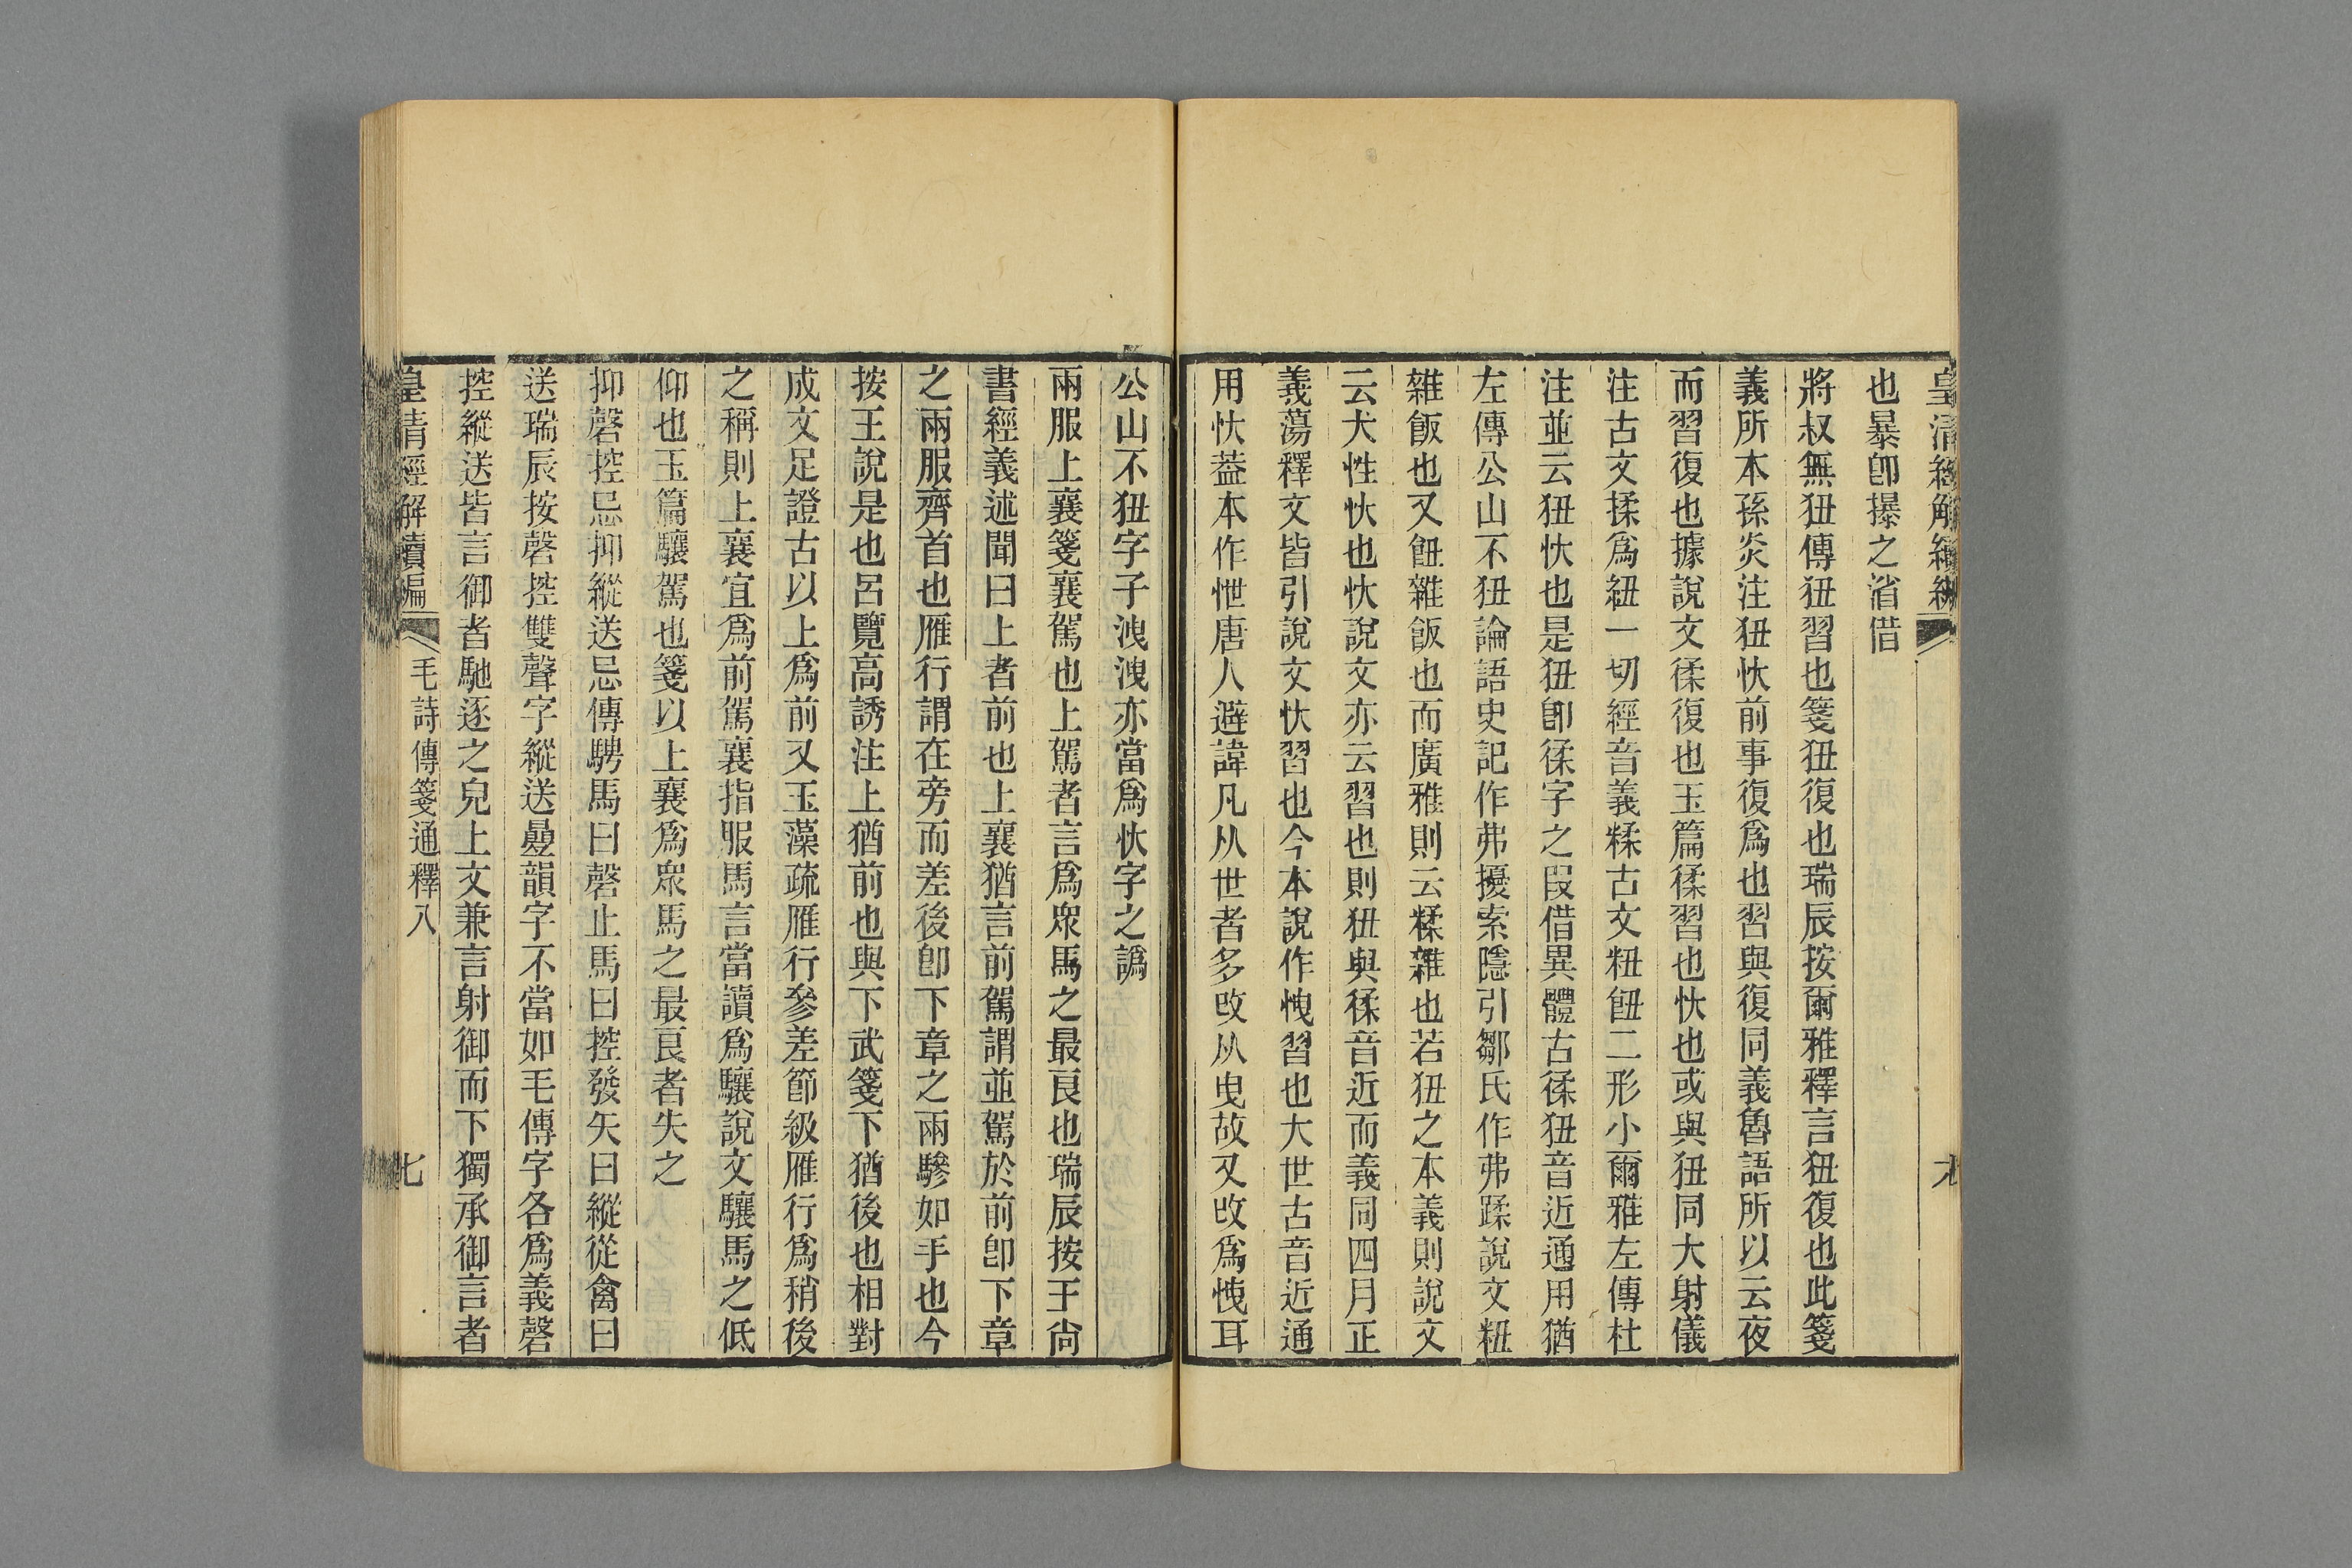 皇清經解續編
也暴卽㬥之渻借
將叔無狃傳狃習也箋狃復也瑞辰按爾雅釋言狃復也此箋
義所本孫炎注狃忕前事復爲也習與復同義魯語所以云夜
而習復也據說文徖復也玉篇徖習也忕也或與狃同大射儀
注古文揉爲紐一切經音義糅古文粈䤔二形小爾雅左傳杜
注並云狃忕也是狃卽徖字之叚借異體古徖狃音近通用猶
左傳公山不狃論語史記作弗擾索隱引鄒氏作弗蹂說文粈
雜飯也又飷雜飯也而廣雅則云糅雜也若狃之本義則說文
云犬性忕也忕說文亦云習也則狃與徖音近而義同四月正
義蕩釋文皆引說文忕習也今本說作愧習也大世古音近通
用忕葢本作怈唐人避諱凡从世者多改从曳故又改爲㥝耳
公山不狃字子洩洩亦當爲忕字之譌
兩服上襄箋襄駕也上駕者言爲衆馬之最良也瑞辰按王尙
書經義述聞曰上者前也上襄猶言前駕謂並駕於前卽下章
之兩服齊首也雁行謂在旁而差後卽下章之兩驂如手也今
按王說是也呂覽高誘注上猶前也與下武箋下猶後也相對
成文足證古以上爲前又玉藻疏雁行參差節級雁行爲稍後
之稱則上襄宜爲前駕襄指服馬言當讀爲驤說文驤馬之低
仰也玉篇驤駕也箋以上襄爲衆馬之最良者失之
抑磬控忌抑縱送忌傳騁馬曰磬止馬曰控發矢曰縱從禽曰
送瑞辰按磬控雙聲字縱送曡韻字不當如毛傳字各爲義磬
控縱送皆言御者馳逐之皃上文兼言射御而下獨承御言者
皇清經解續編 毛詩傳箋通釋八 七